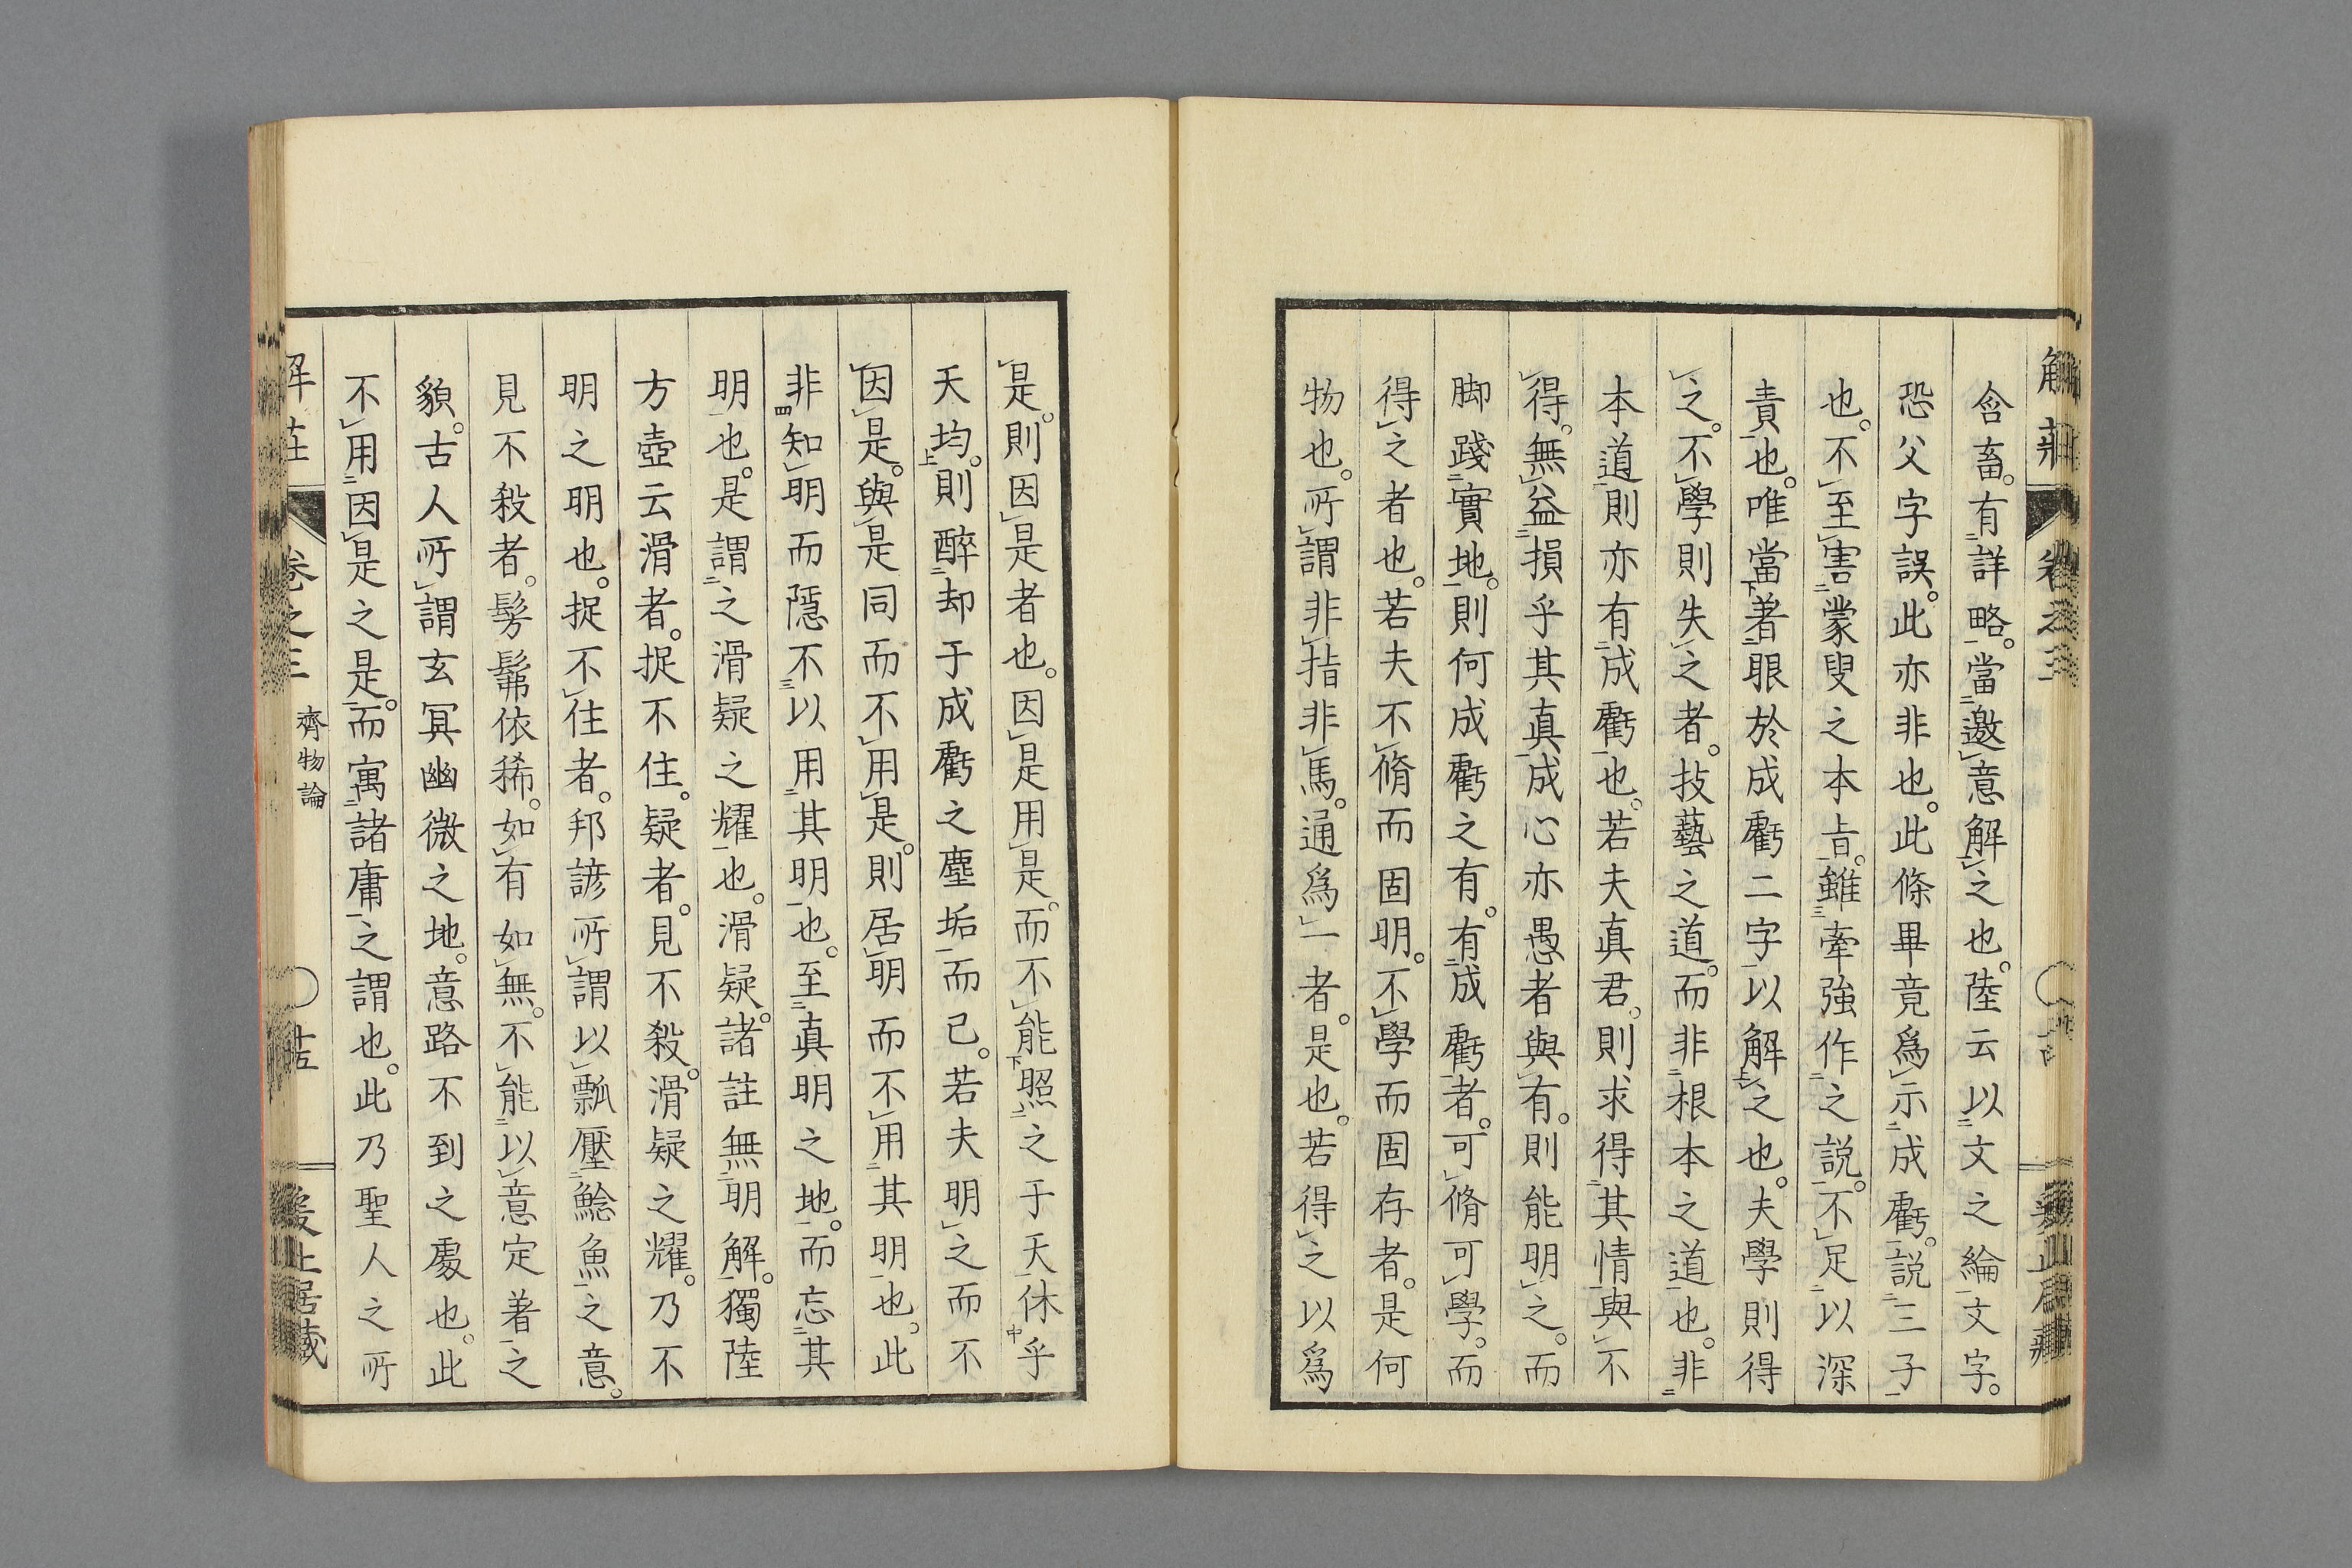 解莊 卷之三
含畜。有詳略。當邀意解之也。陸云以文之綸文字。
恐父字誤。此亦非也。此條畢竟爲示成虧。説三子
也。不至害蒙叟之本旨。雖牽強作之説。不足以深
責也。唯當著眼於成虧二字以解之也。夫學則得
之。不學則失之者。技藝之道。而非根本之道也。非
本道則亦有成虧也。若夫真君。則求得其情與不
得。無益損乎其真。成心亦愚者與有。則能明之。而
脚踐實地。則何成虧之有。有成虧者。可脩可學。而
得之者也。若夫不脩而固明。不學而固存者。是何
物也。所謂非指非馬。通爲一者。是也。若得之以爲
是。則因是者也。因是用是。而不能照之于天休乎
天均。則醉却于成虧之塵垢而已。若夫明之而不
因是。與是同而不用是。則居明而不用其明也。此
非知明而隱不以用其明也。至真明之地。而忘其
明也。是謂之滑疑之耀也。滑疑。諸註無明解。獨陸
方壺云滑者。捉不住。疑者。見不殺。滑疑之耀。乃不
明之明也。捉不住者。邦諺所謂以瓢壓鯰魚之意。
見不殺者。髣髴依稀。如有如無。不能以意定著之
貌。古人所謂玄冥幽微之地。意路不到之處也。此
不用因是之是。而寓諸庸之謂也。此乃聖人之所
解莊 卷之三 齊物論 十五